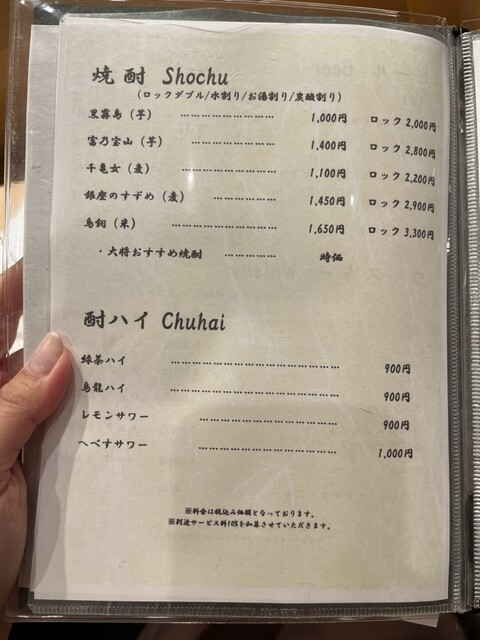 焼酎 Shochu
(ロックダブル/水割り/お湯割り/炭酸割り)
黒霧島(芋) ………………………… 1,000円 ロック 2,000円
富乃宝山(芋) ……………………… 1,400円 ロック 2,800円
千亀女(麦) ………………………… 1,100円 ロック 2,200円
銀座のすずめ(麦) ……………………… 1,450円 ロック 2,900円
鳥飼(米) ………………………… 1,650円 ロック 3,300円
・大将おすすめ焼酎 …………… 時価
酎ハイ Chuhai
緑茶ハイ …………………………………………… 900円
烏龍ハイ …………………………………………… 900円
レモンサワー …………………………………… 900円
へべすサワー …………………………………… 1,000円
※料金は税込み価額となっております。
※別途サービス料10%を加算させていただきます。